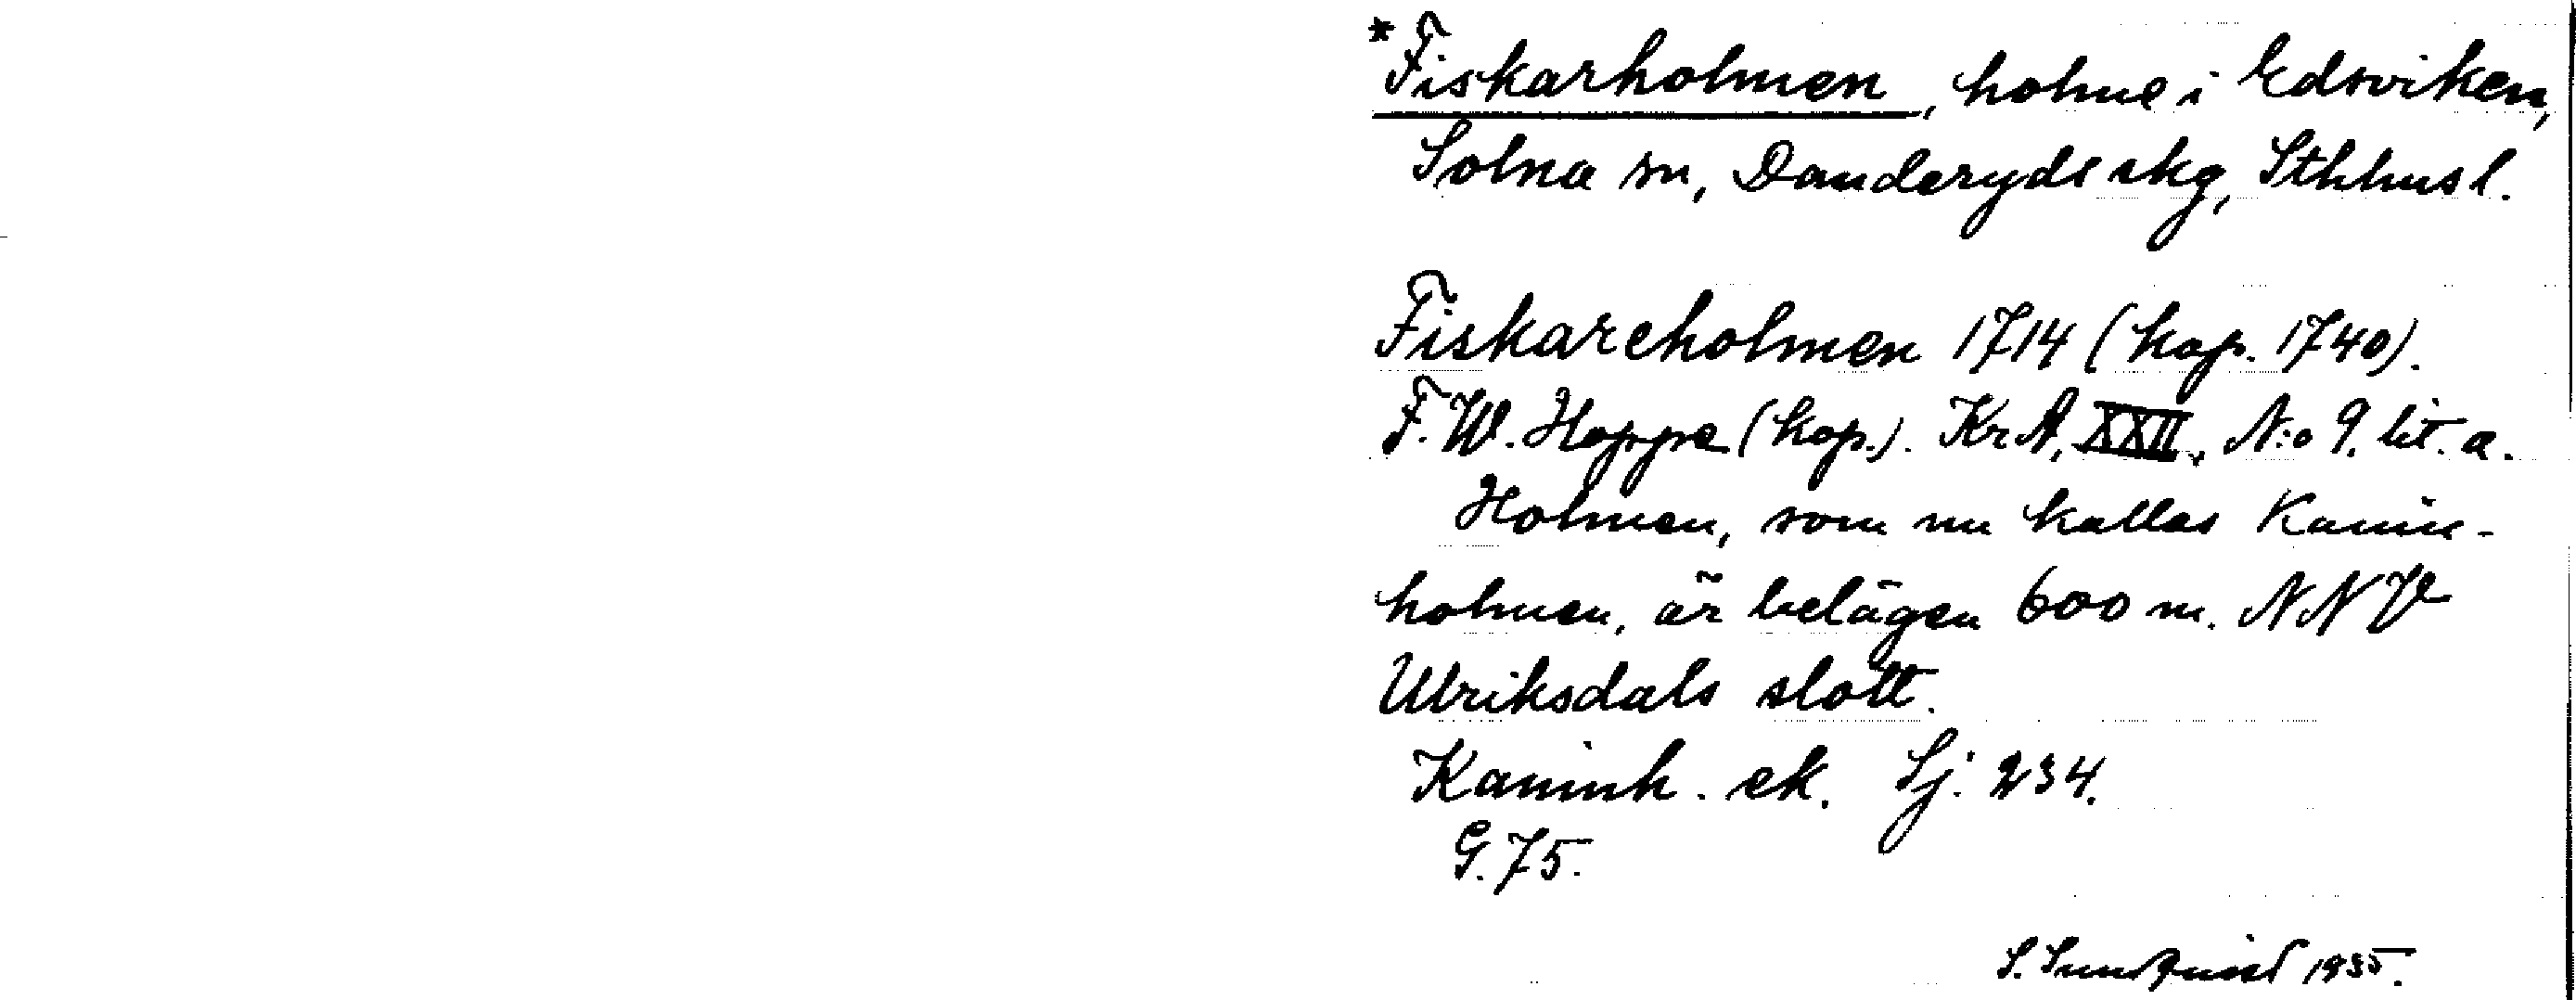 *Fiskarholmen, holme i Edsviken,
Solna sn, Danderyds skg, Sthhus l.
Fiskareholmen 1714 (kop. 1740).
F. W. Hoppe (kop.). KrA, XXII, N:o 9. lit. a.
Holmen, som nu kallas Kanin-
holmen, är belägen 600 m. NNV
Ulriksdals slott.
Kaninh. ek. Sj. 234.
G. 75.
S. Sundquist 1935.